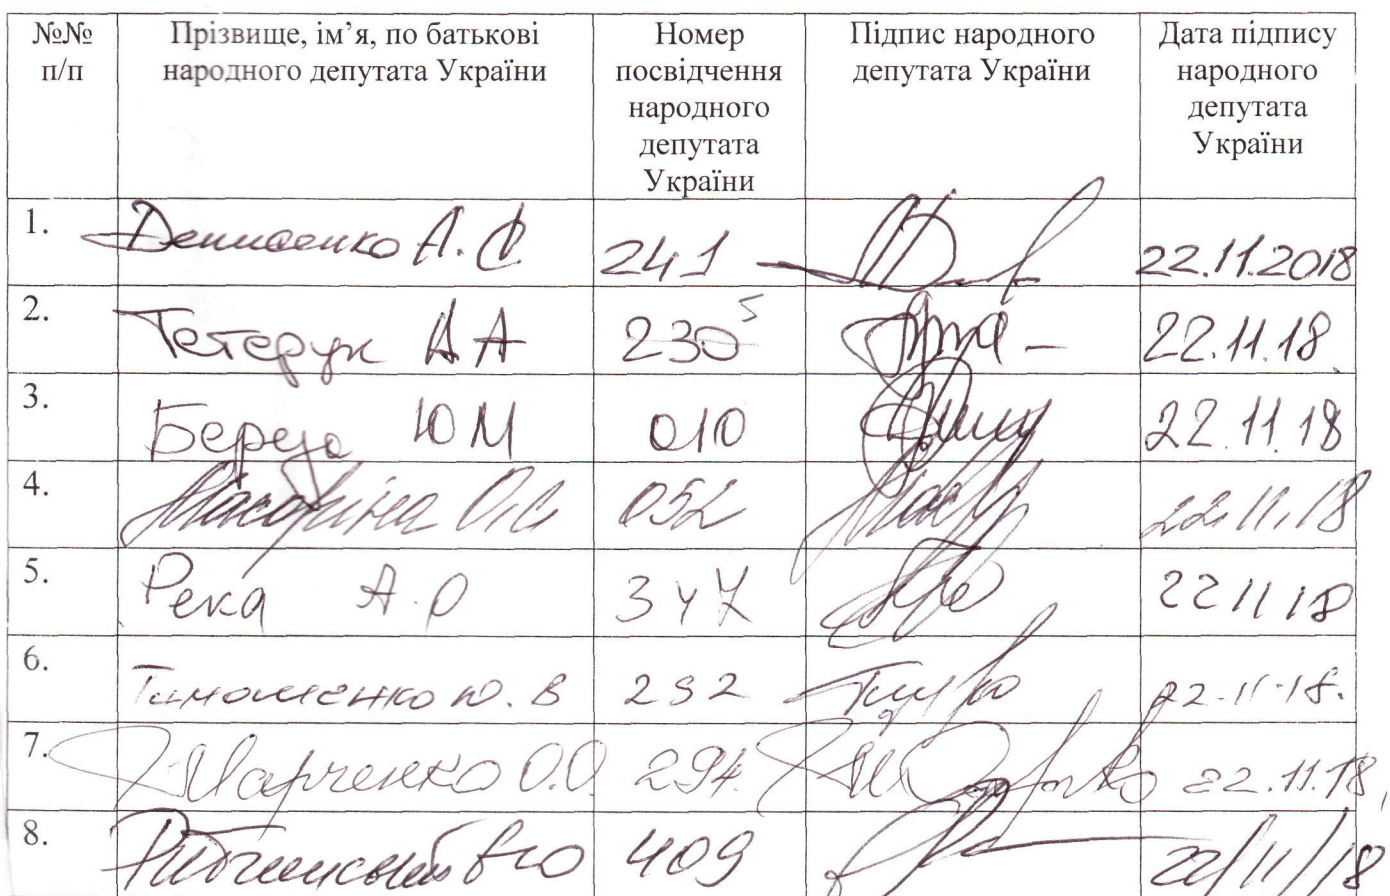 №№ п/п Прізвище, ім’я, по батькові народного депутата України Номер посвідчення народного депутата України Підпис народного депутата України Дата підпису народного депутата України
1. Денисенко А. С. 241 22.11.2018
2. Тетерук А А 230 5 22.11.18.
3. Береза Ю М 010 22.11.18
4. О.С. 052 22.11.18
5. Река А.О 347 22 11 18
6. Тимошенко Ю. В 292 22.11.18.
7. Марченко О.О. 294. 22.11.18,
8. 409 22/11/18